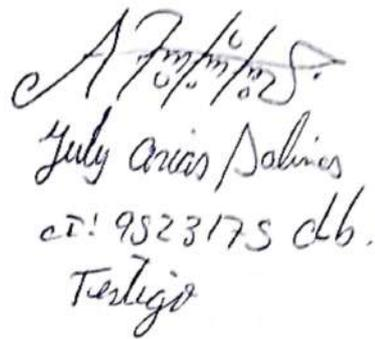 July Arias Salinas
CI: 9523175 cb.
Testigo